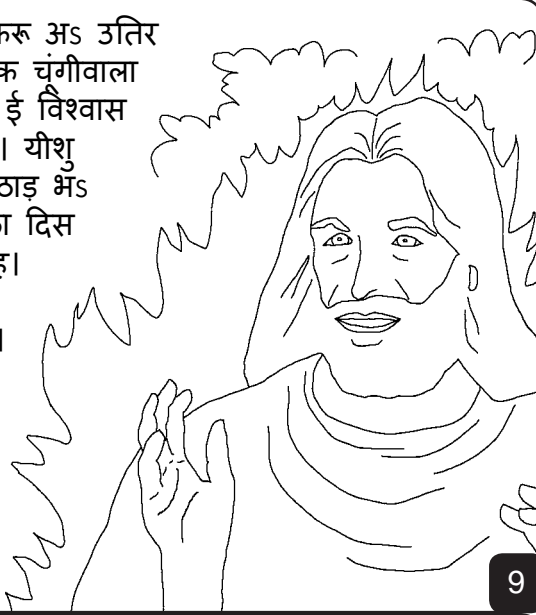 अऽ उतिर
चूंगीवाला
ई विश्वास
। यीशु
ठाड़ भऽ
दिस
।
।
9